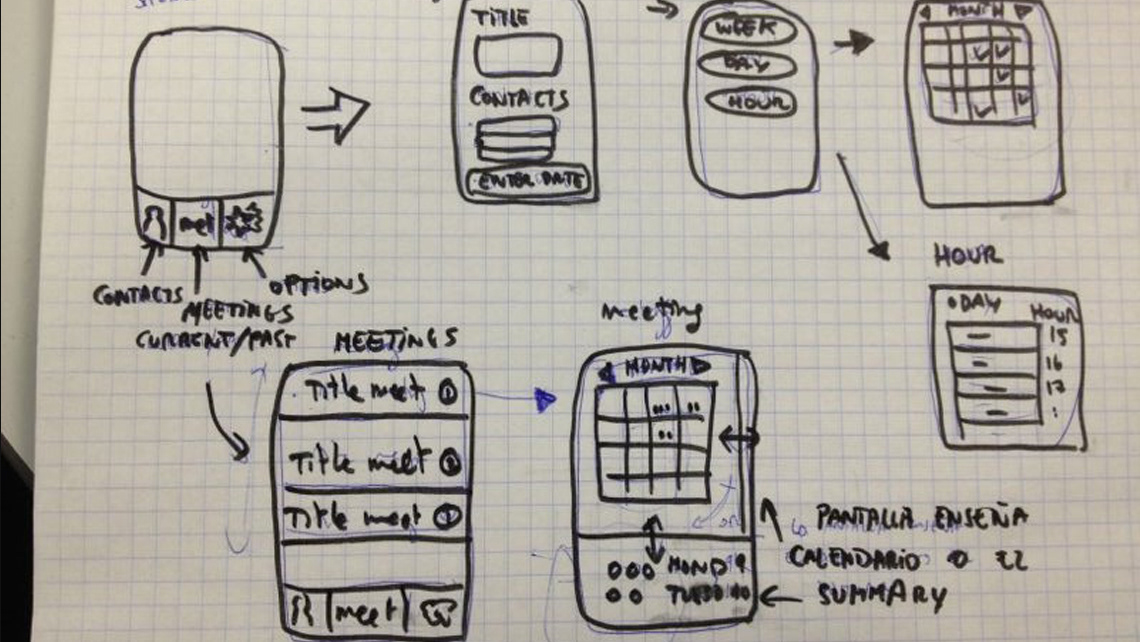 TITLE
CONTACTS
ENTER DATE
WEEK
DAY
HOUR
MONTH
met
CONTACTS
MEETINGS
CURRENT/PAST
OPTIONS
HOUR
DAY
HOUR
15
16
17
MEETINGS
Title meet
Title meet
Title meet
meet
Meeting
MONTH
MOND 9
PANTALLA ENSEÑA
CALENDARIO O
SUMMARY